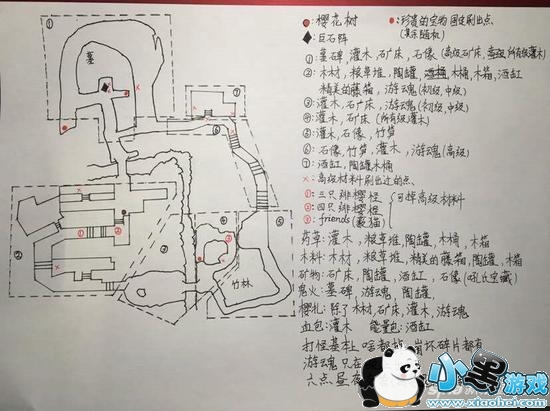 :樱花树
:珍贵的宝物 固定刷出点
(其余随机)
:巨石阵
①:墓碑,灌木,矿床,石像(高级矿床,所有级灌木)
②:木材,粮草堆,陶罐,木桶,木箱,酒缸
精美的藤箱,游魂(初级,中级)
③:灌木,矿床,游魂(初级,中级)
④:灌木,矿床(所有级灌木)
⑤:灌木,石像,竹笋
⑥:石像,竹笋,灌木,游魂(高级)
⑦:酒缸,陶罐木桶
×:高级材料刷出过的点
①:三只绯樱怪
②:四只绯樱怪
可掉高级材料
③:friends(豪猫)
药草:灌木,粮草堆,陶罐,木桶,木箱
木料:木材,粮草堆,精美的藤箱,陶罐,木箱
矿物:矿床,陶罐,酒缸,石像
鬼火:墓碑,游魂,陶罐,
樱札:除了木材,矿床,灌木,游魂
血包:灌木 能量包:酒缸
打怪基本上啥都掉,崩坏碎片都有
游魂只在
六点昼夜
①
墓
⑦
⑥
③
④
⑤
竹林
②
①
②
③
小黑游戏
www.xiaohei.com